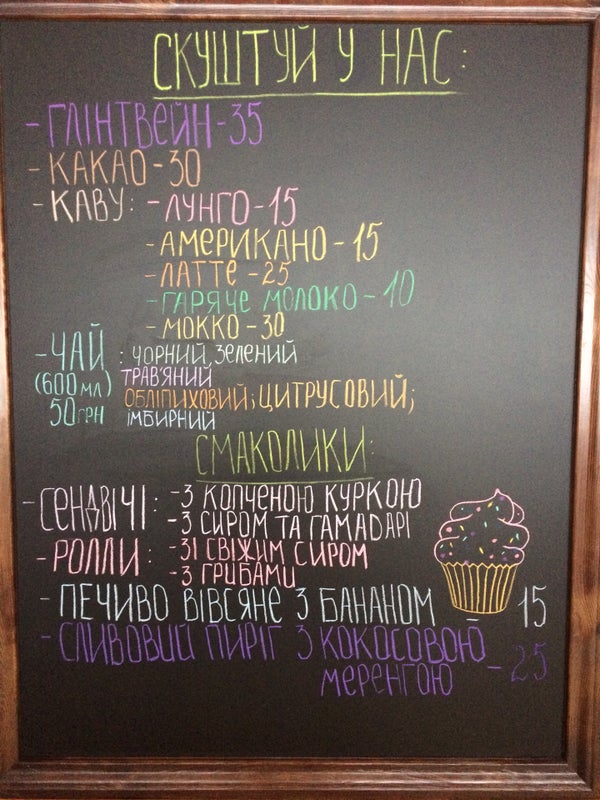 СКУШТУЙ У НАС:
- ГЛІНТВЕЙН - 35
- КАКАО - 30
- КАВУ: - ЛУНГО - 15
- АМЕРИКАНО - 15
- ЛАТТЕ - 25
- ГАРЯЧЕ МОЛОКО - 10
- МОККО - 30
- ЧАЙ : ЧОРНИЙ, ЗЕЛЕНИЙ
(600 МЛ) ТРАВ'ЯНИЙ
50 ГРН ОБЛІПИХОВИЙ; ЦИТРУСОВИЙ;
ІМБИРНИЙ
СМАКОЛИКИ:
- СЕНДВІЧІ: - З КОПЧЕНОЮ КУРКОЮ
- З СИРОМ ТА ГАМАDАРІ
- РОЛЛИ: - ЗІ СВІЖИМ СИРОМ
- З ГРИБАМИ
- ПЕЧИВО ВІВСЯНЕ З БАНАНОМ - 15
- СЛИВОВИЙ ПИРІГ З КОКОСОВОЮ
МЕРЕНГОЮ - 25